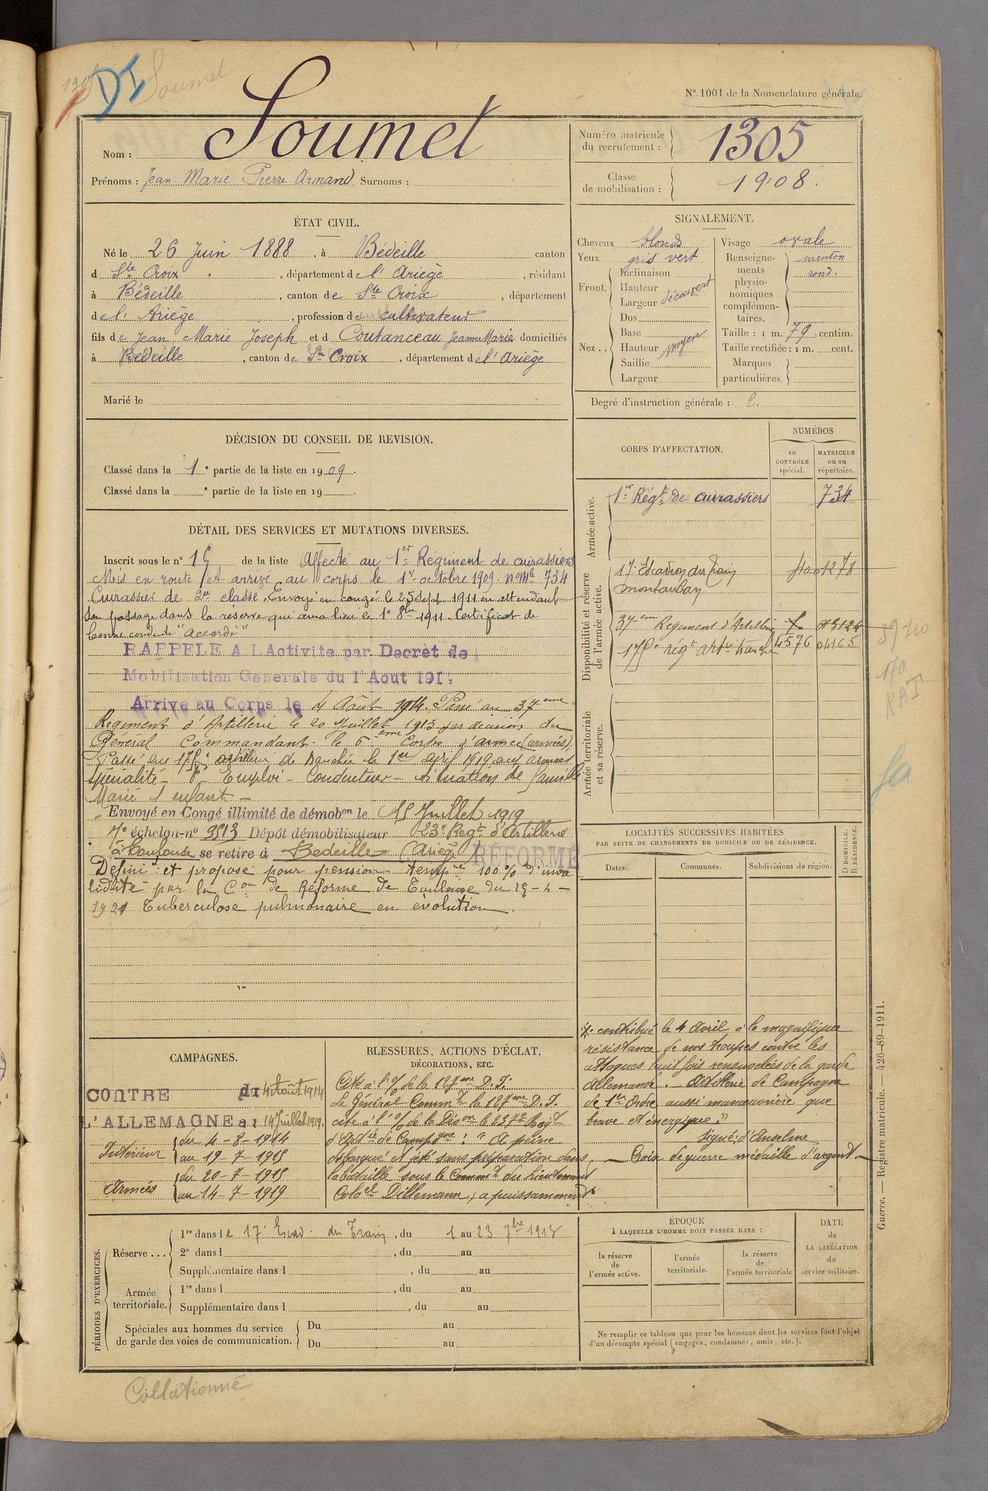 1305 DI Soumet
N° 1001 de la Nomenclature générale.
Nom : Soumet
Prénoms : Jean Marie Pierre Armand Surnoms :
Numéro matricule du recrutement : 1305
Classe de mobilisation : 1908.
ÉTAT CIVIL.
Né le 26 Juin 1888, à Bédeille canton
d Ste Croix, département de l'Ariège, résidant
à Bédeille, canton de Ste Croix, département
de l'Ariège, profession de cultivateur
fils de Jean Marie Joseph et d Coutanceau Jeanne Marie domiciliés
à Bédeille, canton de Ste Croix, département de l'Ariège
Marié le
SIGNALEMENT.
Cheveux blonds
Yeux gris vert
Front. Inclinaison
Hauteur
Largeur découvert
Nez.. Dos
Base
Hauteur moyen
Saillie
Largeur
Visage ovale
Renseignements physionomiques complémentaires. menton rond.
Taille : 1 m. 79 centim.
Taille rectifiée : 1 m. cent.
Marques particulières.
Degré d'instruction générale : 2.
DÉCISION DU CONSEIL DE REVISION.
Classé dans la 1e partie de la liste en 1909.
Classé dans la e partie de la liste en 19
DÉTAIL DES SERVICES ET MUTATIONS DIVERSES.
Inscrit sous le n° 15 de la liste Affecté au 1er Régiment de cuirassiers
Mis en route et arrivé au corps le 1er octobre 1909. n° Mle 734
Cuirassier de 2me classe. Envoyé en congé le 25 Sept 1911 en attendant
son passage dans la réserve qui aura lieu le 1er 8bre 1911. Certificat de
bonne conduite "accordé"
RAPPELÉ A L'Activité par Décret de
Mobilisation Générale du 1 Aout 191
Arrivé au Corps le 4 Août 1914. Passé au 37ème
Régiment d'Artillerie le 20 Juillet 1915 par décision du
Général Commandant le 6ème Corps d'armée (armées)
Passé au 175e artillerie de tranchée le 1er avril 1919 aux armées
Spécialité Emploi - Conducteur - situation de famille
Marié 1 enfant -
Envoyé en Congé illimité de démobon le 15 Juillet 1919
7e échelon n° 9513 Dépôt démobilisateur 23e Régt d'Artillerie
à Toulouse se retire à Bedeille (Ariège)
RÉFORMÉ
Défini et proposé pour pension temp re 100% d'inva
lidité par la Con de Réforme de Toulouse du 19-4-
1921 Tuberculose pulmonaire en évolution.
CORPS D'AFFECTATION.
NUMÉROS
au CONTRÔLE spécial.
MATRICULE ou au répertoire.
Armée active.
1er Régt de cuirassiers 734
Disponibilité et réserve de l'armée active.
17e Escadron du Train
Montauban
37em Régiment d'Artillerie
175e régt arte tranchée 4576 04165
Armée territoriale et sa réserve.
RAT
LOCALITÉS SUCCESSIVES HABITÉES
PAR SUITE DE CHANGEMENTS DE DOMICILE OU DE RÉSIDENCE.
Dates.
Communes.
Subdivisions de région.
D DOMICILE.
R RÉSIDENCE.
CAMPAGNES.
CONTRE du 4 Août 1914
L'ALLEMAGNE au 14 Juillet 1919
Intérieur du 4-8-1914
au 19-7-1915
Armées du 20-7-1915
au 14-7-1919
BLESSURES, ACTIONS D'ÉCLAT,
DÉCORATIONS, ETC.
Cité à l'o/ de la 127ème D.I.
Le Général Commt la 127ème D.I.
cite à l'o/ de la Dion le 237e Régt
d'Artie de Campgne : "A peine
débarqué et jeté sans préparation dans
la bataille sous le Commt du Lieutenant
Colonel Dillemann, a puissamment
contribué le 4 Avril à la magnifique
résistance de nos troupes contre les
attaques huit fois renouvelées de la garde
Allemande. - Artillerie de Campagne
de 1er Ordre aussi manœuvrière que
brave et énergique."
Signé : d'Anselme
Croix de guerre médaille d'argent
PÉRIODES D'EXERCICES.
Réserve... 1re dans le 17e Escad. du Train, du 1 au 23 7bre 1913
2e dans l , du au
Supplémentaire dans l , du au
Armée territoriale. 1re dans l , du au
Supplémentaire dans l , du au
Spéciales aux hommes du service de garde des voies de communication. Du au
Du au
ÉPOQUE
À LAQUELLE L'HOMME DOIT PASSER DANS :
la réserve de l'armée active.
l'armée territoriale.
la réserve de l'armée territoriale
DATE de LA LIBÉRATION du service militaire.
Ne remplir ce tableau que pour les hommes dont les services font l'objet
d'un décompte spécial (engagés, condamnés, omis, etc.).
Guerre. — Registre matricule. — 426-89-1911.
Collationné